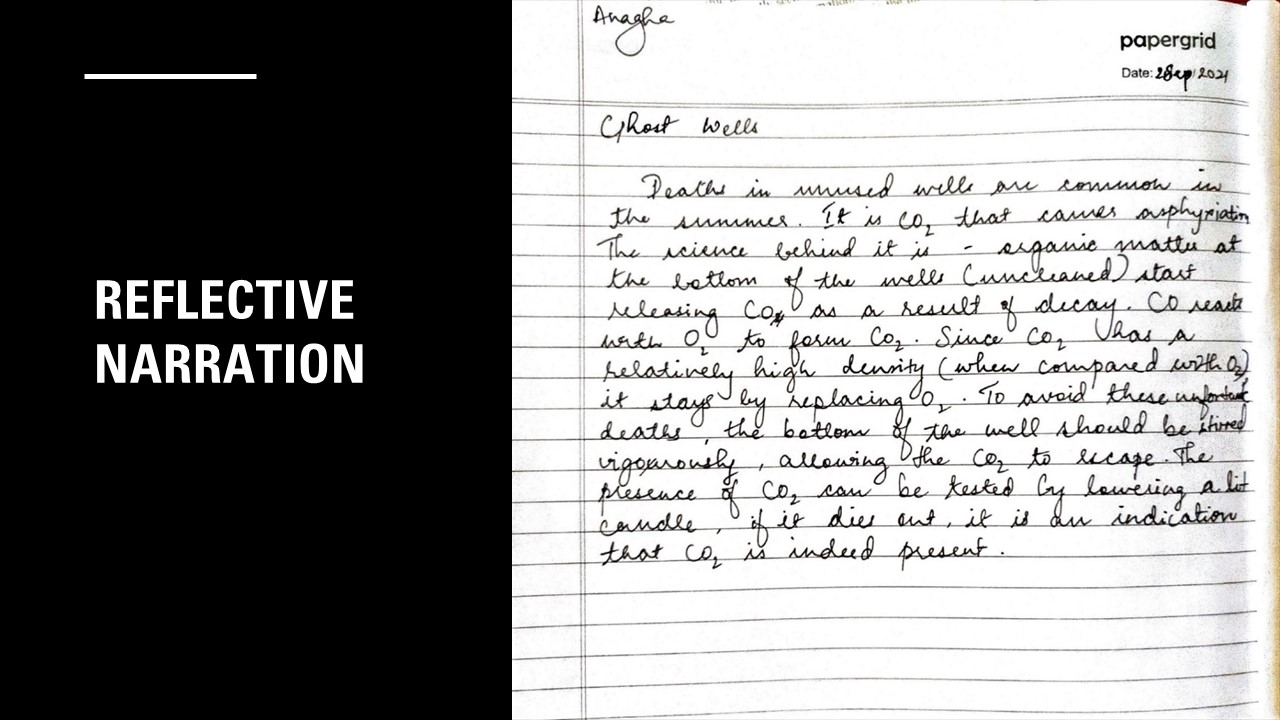 REFLECTIVE
NARRATION
Anagha
papergrid
Date: 28ep 2021
Ghost Wells
Deaths in unused wells are common in
the summer. It is CO₂ that causes asphyxiation
The science behind it is - organic matter at
the bottom of the wells (uncleaned) start
releasing CO as a result of decay. CO reacts
with O₂ to form CO₂. Since CO₂ has a
relatively high density (when compared with O₂)
it stays by replacing O₂. To avoid these
deaths, the bottom of the well should be stirred
vigourously, allowing the CO₂ to escape. The
presence of CO₂ can be tested by lowering a lit
candle, if it dies out, it is an indication
that CO₂ is indeed present.